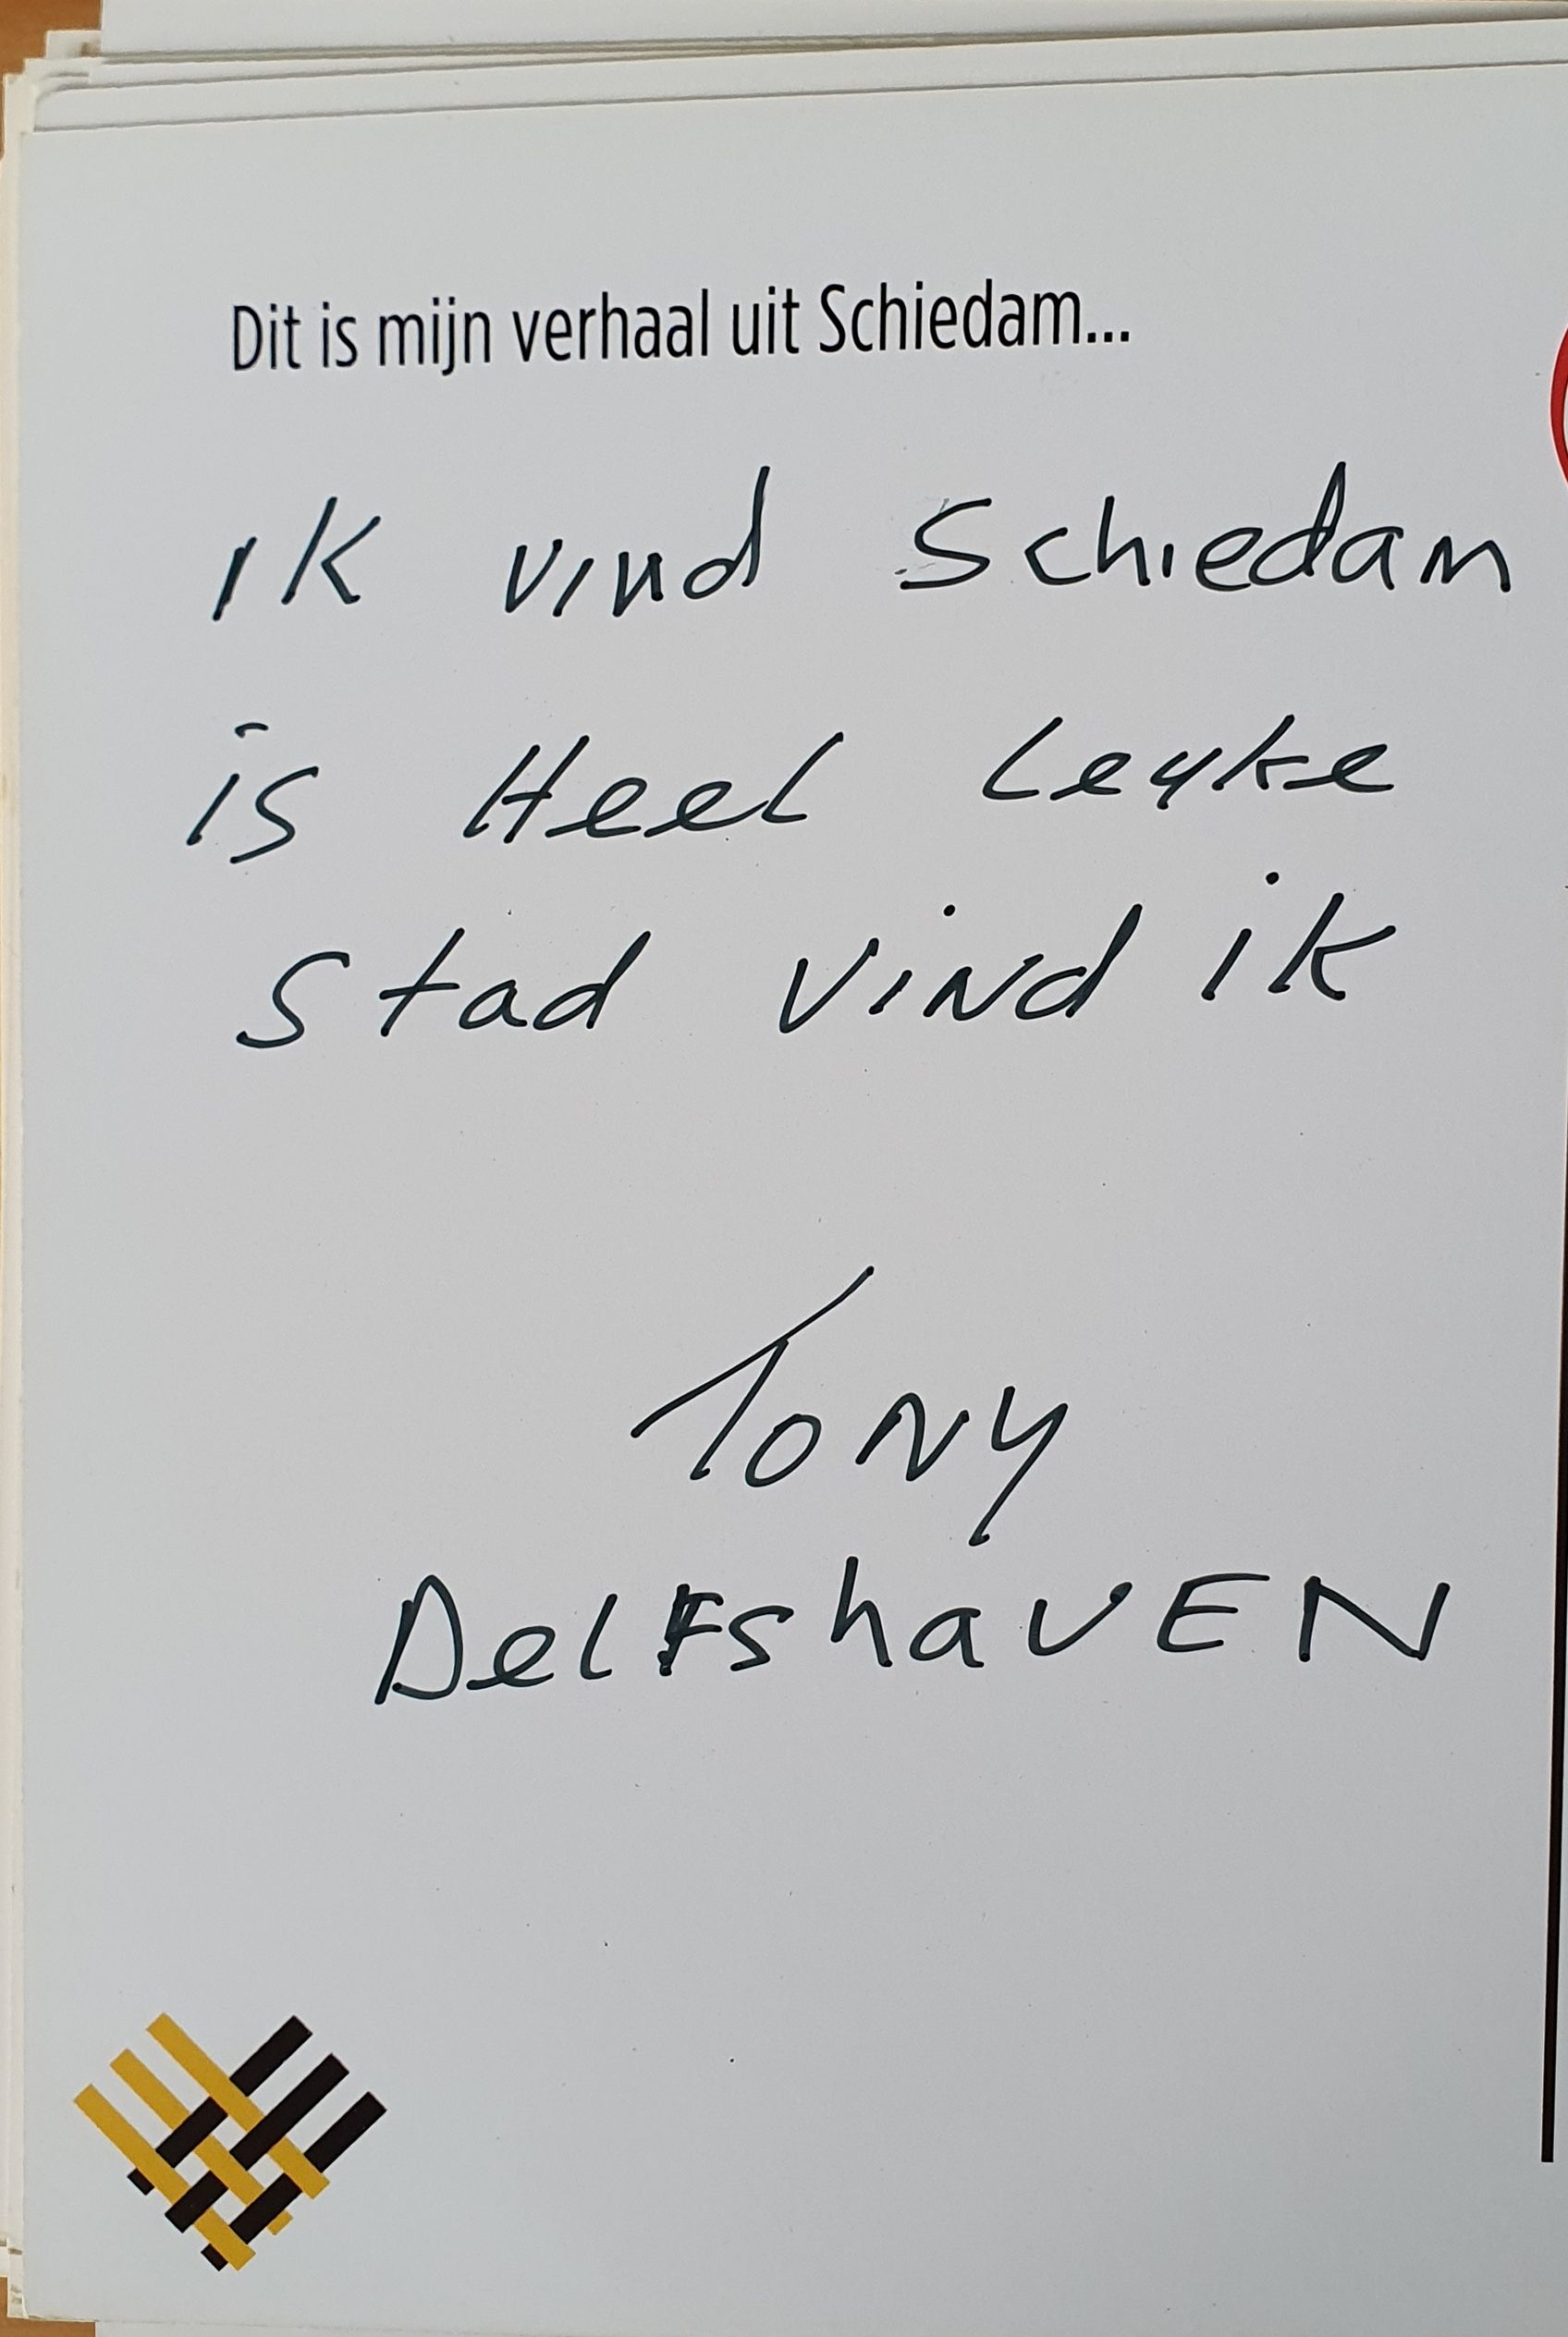 Dit is mijn verhaal uit Schiedam...
ik vind Schiedam
is Heel Leyke
Stad vind ik
Tony
DelfshavEN